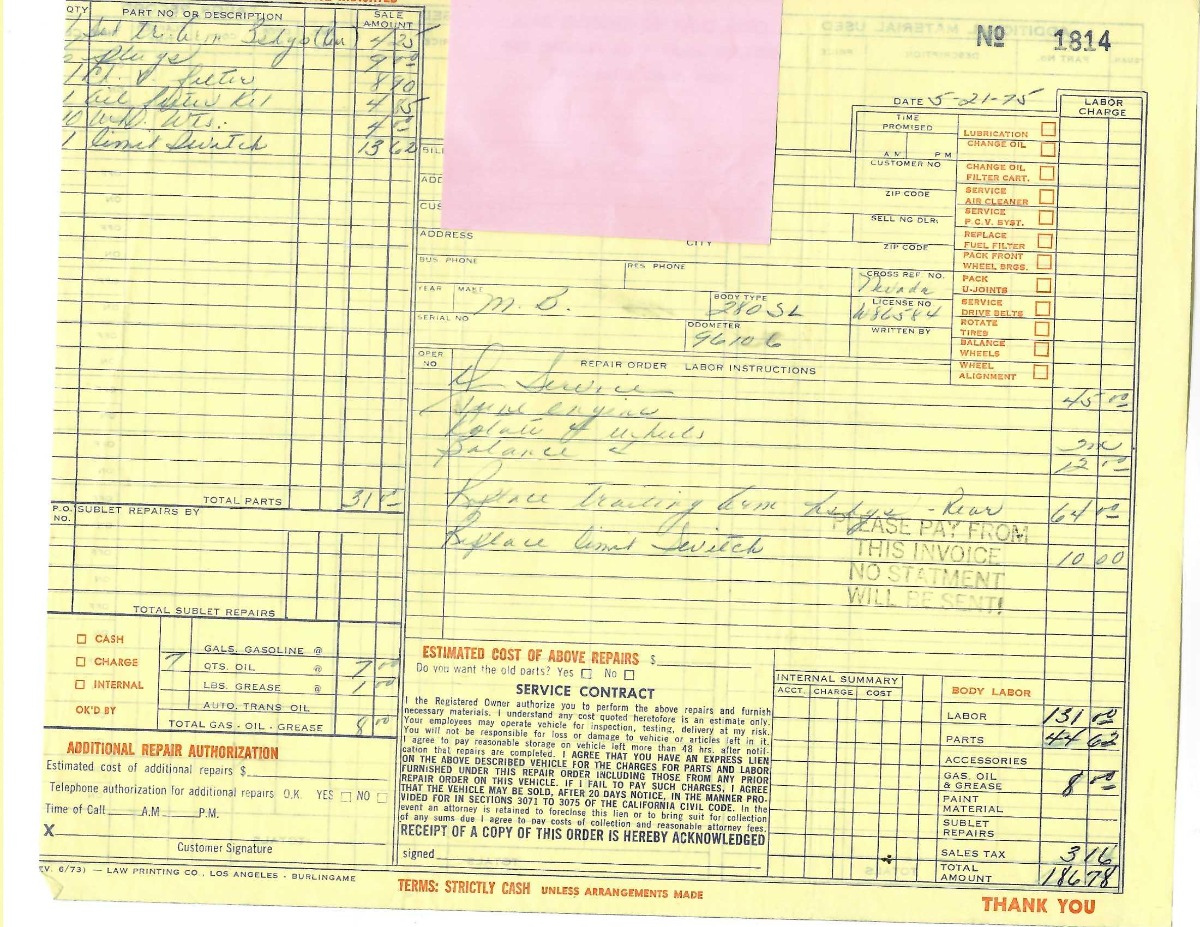 QTY PART NO. OR DESCRIPTION SALE AMOUNT
4 25
6 Plugs 9 00
1 filter 8 90
1 Oil Filter Kit 4 85
10 W.W. Wts. 4 00
1 limit Switch 13 62
TOTAL PARTS 31 00
P.O. NO. SUBLET REPAIRS BY
TOTAL SUBLET REPAIRS
CASH
CHARGE
INTERNAL
OK'D BY
GALS. GASOLINE @
7 QTS. OIL @ 7 00
LBS. GREASE @ 1 00
AUTO. TRANS OIL
TOTAL GAS - OIL - GREASE 8 00
ADDITIONAL REPAIR AUTHORIZATION
Estimated cost of additional repairs $
Telephone authorization for additional repairs O.K. YES NO
Time of Call A.M P.M.
X
Customer Signature
EV. 6/73) — LAW PRINTING CO., LOS ANGELES - BURLINGAME
No 1814
DATE 5-21-75
LABOR CHARGE
TIME PROMISED
A M P M
CUSTOMER NO
ZIP CODE
SELL NG DLR.
ZIP CODE
BILL
ADD
CUS
ADDRESS CITY
BUS PHONE RES PHONE
CROSS REF NO.
Nevada
YEAR MAKE M. B.
BODY TYPE 280 SL
LICENSE NO W86584
SERIAL NO
ODOMETER 96106
WRITTEN BY
LUBRICATION
CHANGE OIL
CHANGE OIL FILTER CART.
SERVICE AIR CLEANER
SERVICE P.C.V. SYST.
REPLACE FUEL FILTER
PACK FRONT WHEEL BRGS.
PACK U-JOINTS
SERVICE DRIVE BELTS
ROTATE TIRES
BALANCE WHEELS
WHEEL ALIGNMENT
OPER NO REPAIR ORDER LABOR INSTRUCTIONS
Service 45 00
Tune engine
Rotate 4 Wheels
Balance 12 00
Replace trailing arm - Rear 64 00
Replace limit Switch 10 00
PLEASE PAY FROM
THIS INVOICE
NO STATMENT
WILL BE SENT!
ESTIMATED COST OF ABOVE REPAIRS $
Do you want the old parts? Yes No
SERVICE CONTRACT
I the Registered Owner authorize you to perform the above repairs and furnish
necessary materials. I understand any cost quoted heretofore is an estimate only.
Your employees may operate vehicle for inspection, testing, delivery at my risk.
You will not be responsible for loss or damage to vehicle or articles left in it.
I agree to pay reasonable storage on vehicle left more than 48 hrs. after notifi-
cation that repairs are completed. I AGREE THAT YOU HAVE AN EXPRESS LIEN
ON THE ABOVE DESCRIBED VEHICLE FOR THE CHARGES FOR PARTS AND LABOR
FURNISHED UNDER THIS REPAIR ORDER INCLUDING THOSE FROM ANY PRIOR
REPAIR ORDER ON THIS VEHICLE. IF I FAIL TO PAY SUCH CHARGES, I AGREE
THAT THE VEHICLE MAY BE SOLD, AFTER 20 DAYS NOTICE, IN THE MANNER PRO-
VIDED FOR IN SECTIONS 3071 TO 3075 OF THE CALIFORNIA CIVIL CODE. In the
event an attorney is retained to foreclose this lien or to bring suit for collection
of any sums due I agree to pay costs of collection and reasonable attorney fees.
RECEIPT OF A COPY OF THIS ORDER IS HEREBY ACKNOWLEDGED
signed
INTERNAL SUMMARY
ACCT. CHARGE COST
BODY LABOR
LABOR 131 00
PARTS 44 62
ACCESSORIES
GAS. OIL & GREASE 8 00
PAINT MATERIAL
SUBLET REPAIRS
SALES TAX 3 16
TOTAL AMOUNT 186 78
TERMS: STRICTLY CASH UNLESS ARRANGEMENTS MADE
THANK YOU